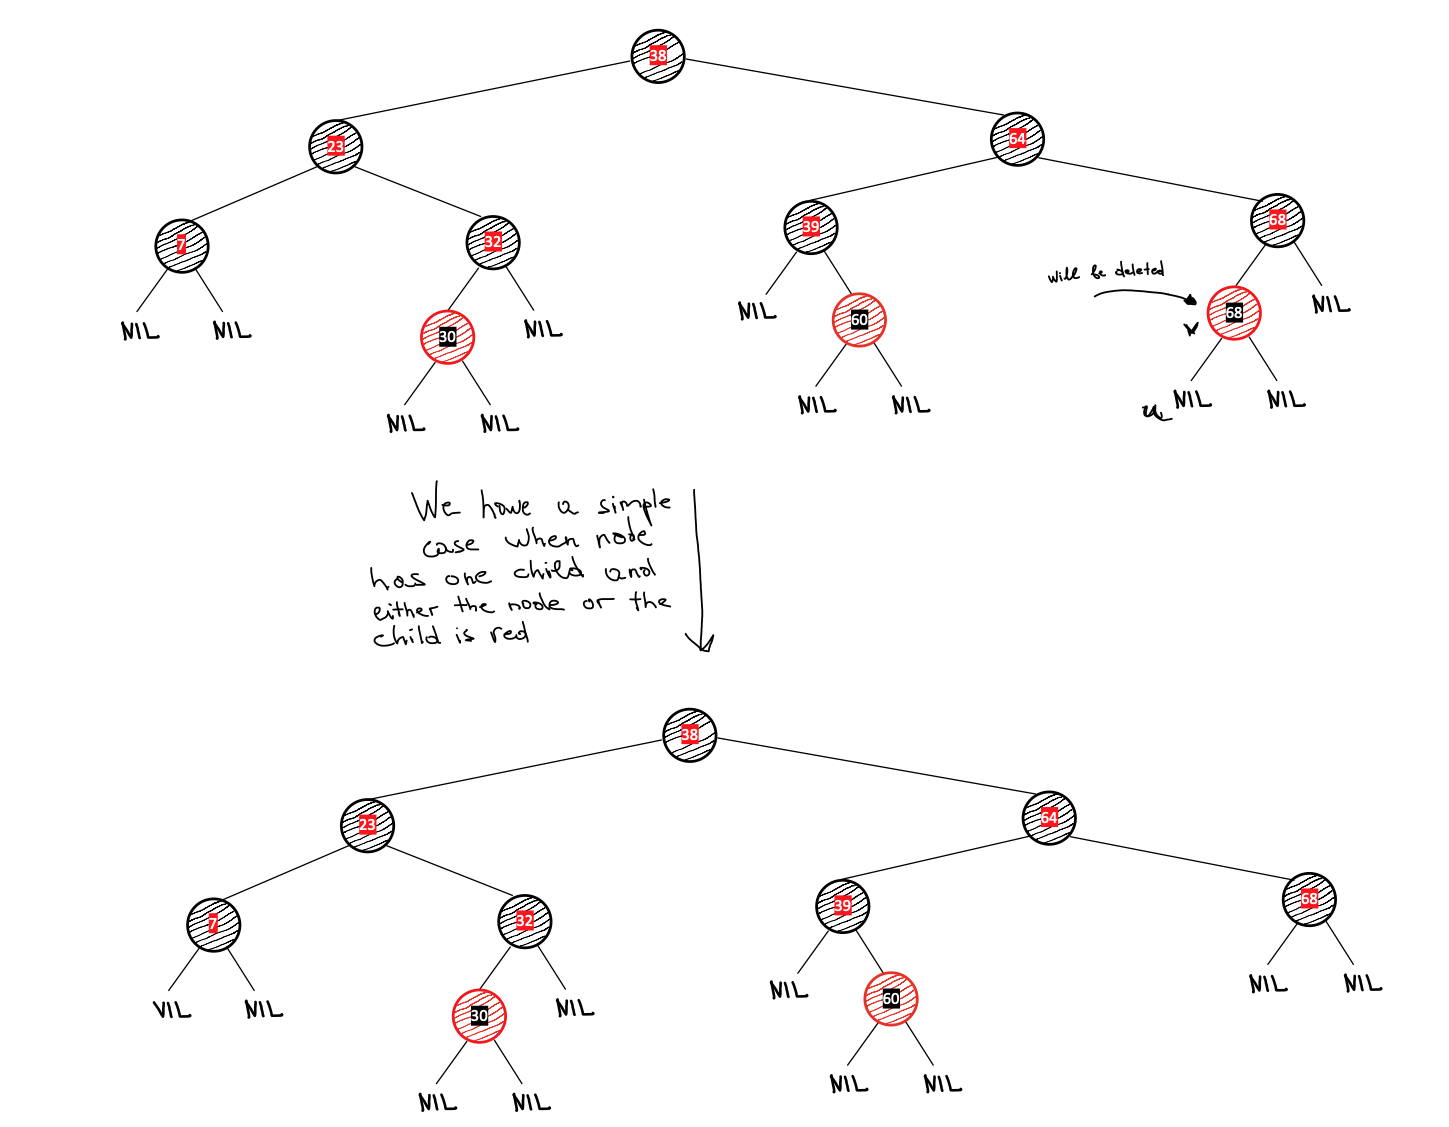 38
23
64
7
32
39
68
will be deleted
NIL
NIL
30
NIL
NIL
60
68
NIL
v
NIL
NIL
NIL
NIL
u
NIL
NIL
We have a simple
case when node
has one child and
either the node or the
child is red
38
23
64
7
32
39
68
VIL
NIL
30
NIL
NIL
60
NIL
NIL
NIL
NIL
NIL
NIL